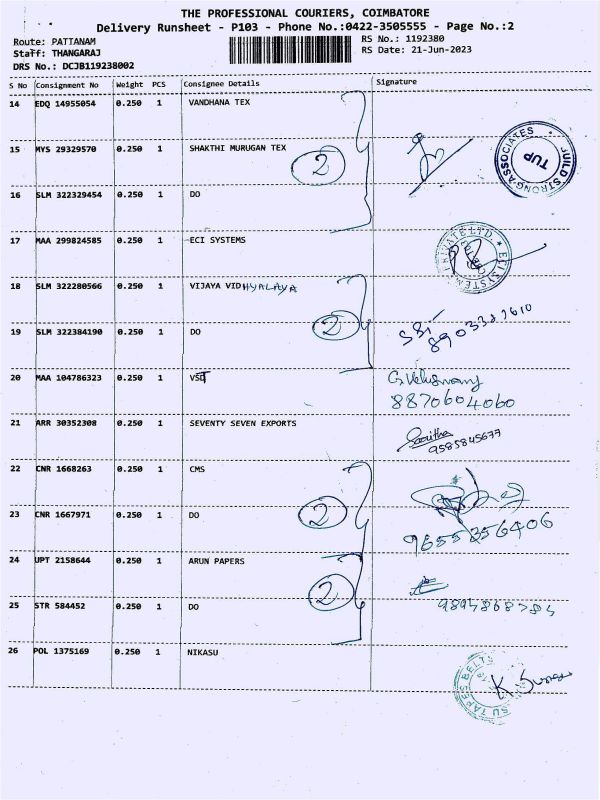 THE PROFESSIONAL COURIERS, COIMBATORE
Delivery Runsheet - P103 - Phone No.:0422-3505555 - Page No.:2
Route: PATTANAM
RS No.: 1192380
Staff: THANGARAJ
RS Date: 21-Jun-2023
DRS No.: DCJB119238002
S No Consignment No Weight PCS Consignee Details Signature
14 EDQ 14955054 0.250 1 VANDHANA TEX
15 MYS 29329570 0.250 1 SHAKTHI MURUGAN TEX
2
BUILD STRONG ASSOCIATES
TUP
16 SLM 322329454 0.250 1 DO
17 MAA 299824585 0.250 1 ECI SYSTEMS
ECI SYSTEMS PRIVATE LTD.
18 SLM 322280566 0.250 1 VIJAYA VIDHYALAYA
2
19 SLM 322384190 0.250 1 DO
20 MAA 104786323 0.250 1 VST
G. Veluswamy
8870604060
21 ARR 30352308 0.250 1 SEVENTY SEVEN EXPORTS
9585845677
22 CNR 1668263 0.250 1 CMS
2
23 CNR 1667971 0.250 1 DO
9655356406
24 UPT 2158644 0.250 1 ARUN PAPERS
2
25 STR 584452 0.250 1 DO
26 POL 1375169 0.250 1 NIKASU
SU TAPES BELTS